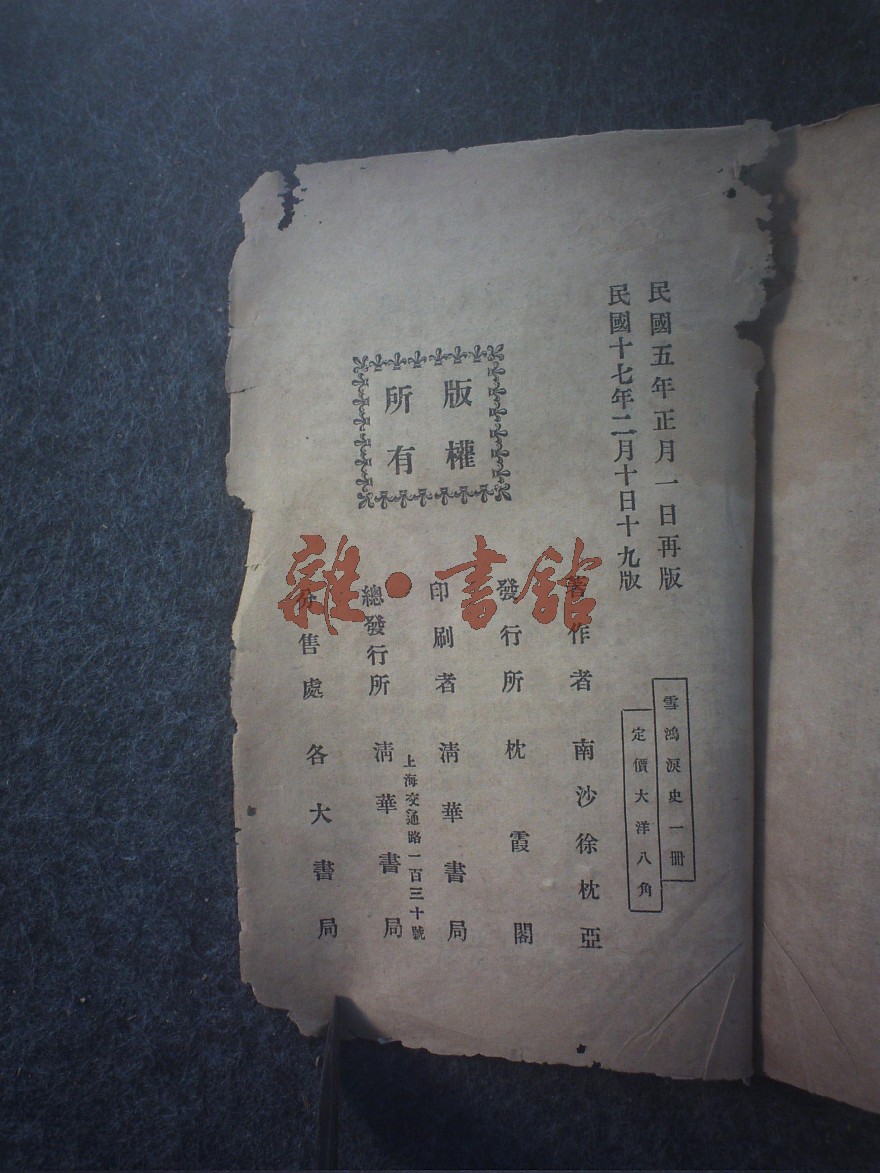 民國五年正月一日再版
民國十七年二月十日十九版
雪鴻淚史一冊
定價大洋八角
版權
所有
著作者 南沙徐枕亞
發行所 枕霞閣
印刷者 清華書局
上海交通路一百三十號
總發行所 清華書局
分售處 各大書局
雜·書館